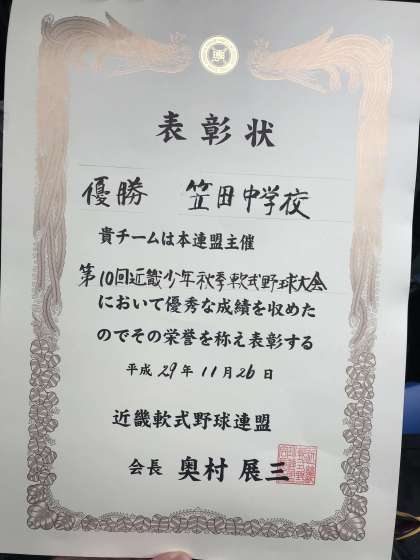 表彰状
優勝 笠田中学校
貴チームは本連盟主催
第10回近畿少年秋季軟式野球大会
において優秀な成績を収めた
のでその栄誉を称え表彰する
平成 29 年 11 月 26 日
近畿軟式野球連盟
会長 奥村 展三